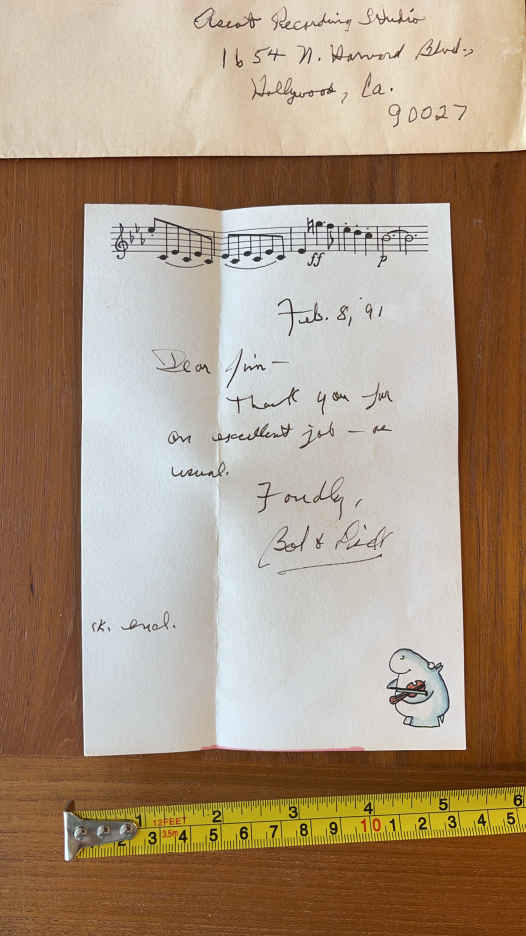 Ascot Recording Studio
1654 N. Harvard Blvd.,
Hollywood, Ca.
90027
ff
p
Feb. 8, '91
Dear Jim —
Thank you for
an excellent job — as
usual.
Fondly,
Bob &
ck. encl.
1 2 3 4 5 6
12FEET
3.5m
2 3 4 5 6 7 8 9 10 1 2 3 4 5